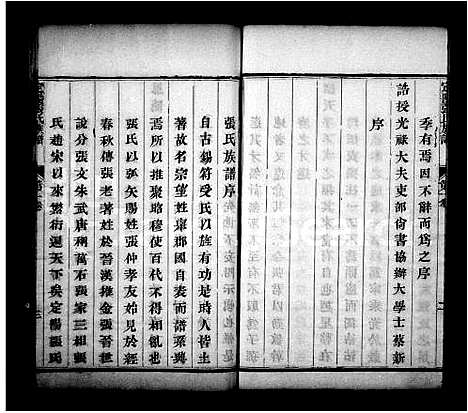 季有焉因不辭而爲之序
誥授光祿大夫吏部尙書協辦大學士蔡新
序
張氏族譜序
自古錫符受氏以旌有功是時人皆土
著故名宗望姓舉郡國自表而譜系興
焉所以推聚昭穆使百代不得相亂也
張氏以弧矢賜姓張仲孝友始見於經
春秋傳張老著姓於晉漢推金張晉世
說分張文朱武唐稱萬石張家三相張
氏趙宋以來蕃衍天下矣定陽張氏